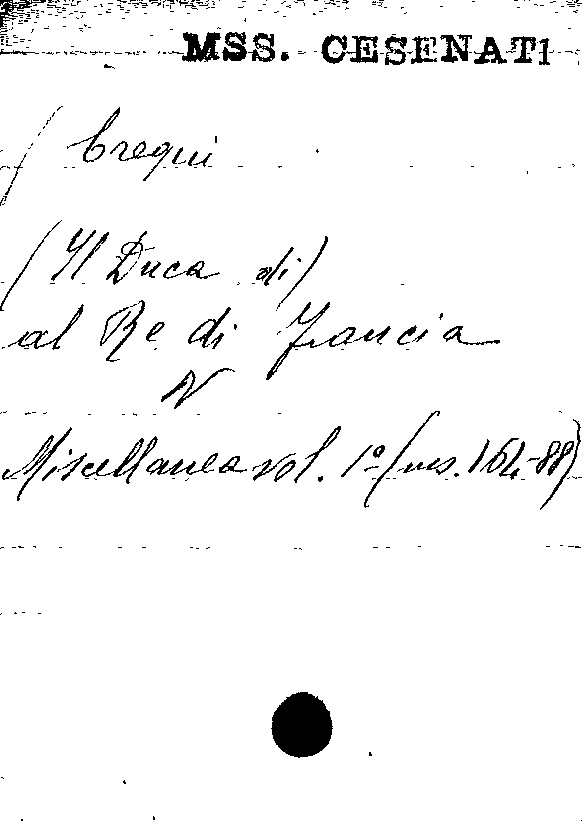 MSS. CESENATI
Crequi
(Il Duca di)
al Re di Francia
N
Miscellanea vol. 1º (ms. 164-88)